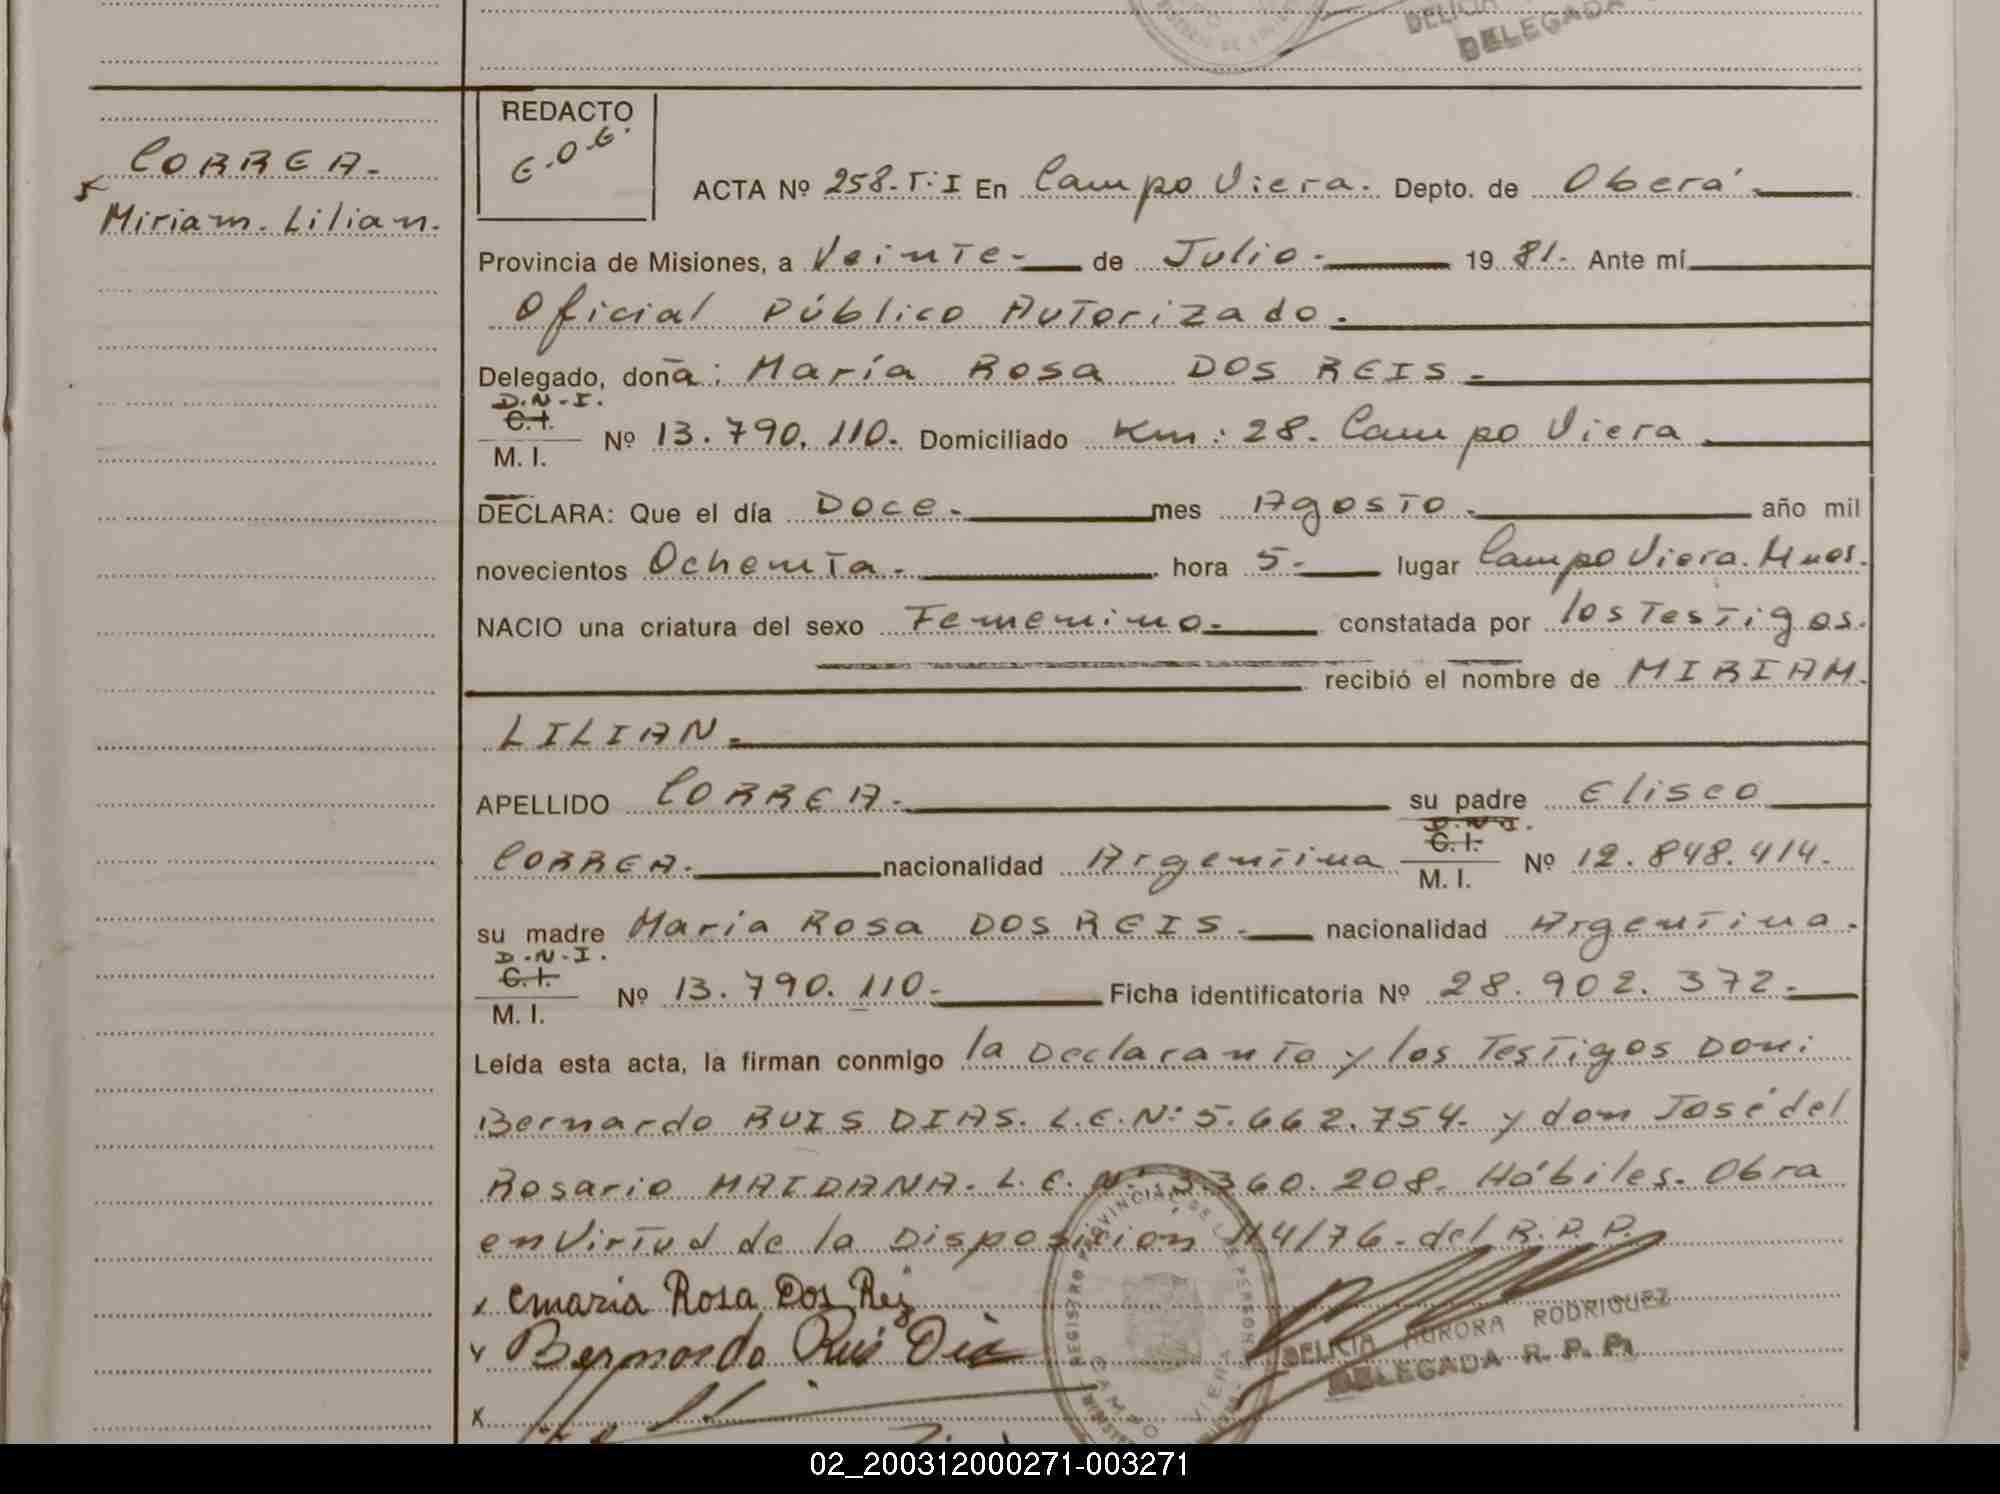 DELICIA
DELEGADA
CORREA.
Miriam. Lilian.
REDACTO
G.O.G.
ACTA Nº 258. T: I En Campo Viera. Depto. de Oberá.
Provincia de Misiones, a Veinte. de Julio. 19 81. Ante mí
Oficial Público Autorizado.
Delegado, doña: María Rosa DOS REIS.
D.N.I.
C.I.
M. I. Nº 13.790.110. Domiciliado Km: 28. Campo Viera
DECLARA: Que el día Doce. mes Agosto. año mil
novecientos Ochenta. hora 5. lugar Campo Viera. Mnes.
NACIO una criatura del sexo Femenino. constatada por los Testigos.
recibió el nombre de MIRIAM.
LILIAN.
APELLIDO CORREA. su padre Eliseo
D.N.I.
CORREA. nacionalidad Argentina C.I. M. I. Nº 12.848.414.
su madre Maria Rosa DOS REIS. nacionalidad Argentina.
D.N.I.
C.I.
M. I. Nº 13.790.110. Ficha identificatoria Nº 28.902.372.
Leída esta acta, la firman conmigo la Declarante y los Testigos Don:
Bernardo RUIS DIAS. L.E.Nº 5.662.754. y don José del
Rosario MAIDANA. L.E. Nº 3.360.208. Hábiles. Obra
en Virtud de la Disposicion 114/76. del R.P.P.
x Maria Rosa Dos Reis
x Bernardo Ruis Dia
x
REGISTRO PROVINCIAL DE LAS PERSONAS
CAMPO VIERA
DELICIA AURORA RODRIGUEZ
DELEGADA R. P. P.
02_200312000271-003271